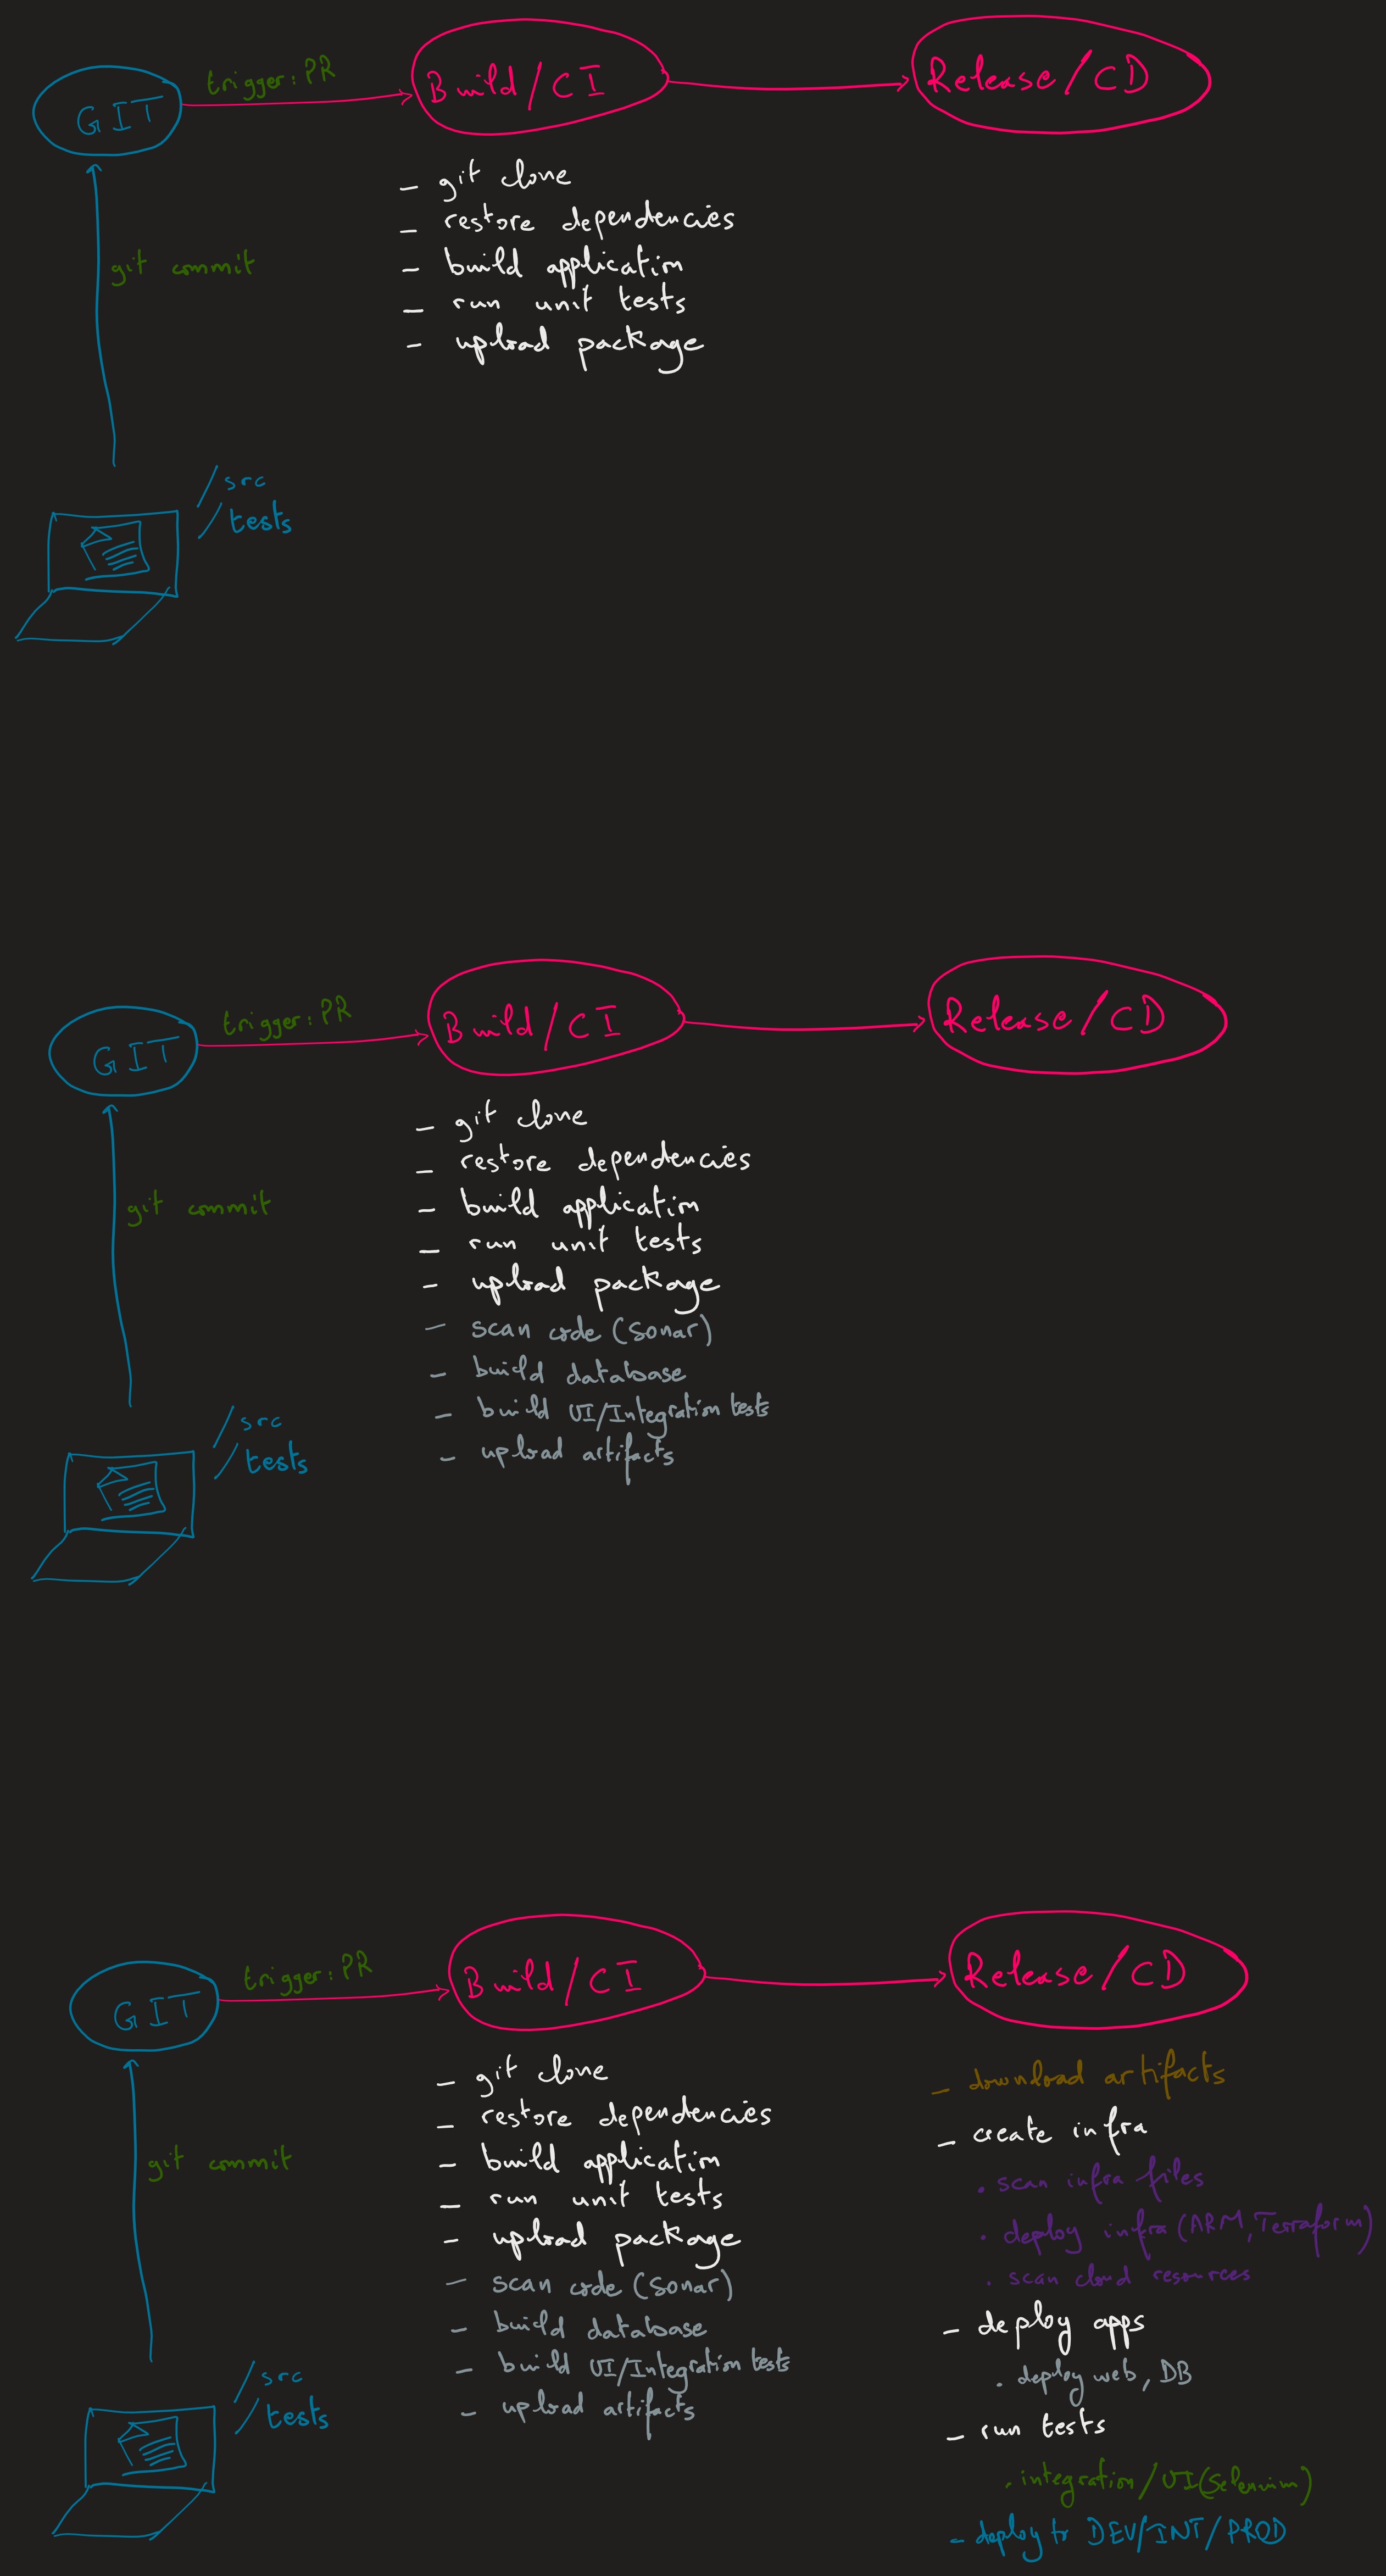 trigger: PR
Build/CI
Release/CD
GIT
- git clone
- restore dependencies
git commit
- build application
- run unit tests
- upload package
/src
/tests
trigger: PR
Build/CI
Release/CD
GIT
- git clone
- restore dependencies
git commit
- build application
- run unit tests
- upload package
- scan code (Sonar)
- build database
- build UI/Integration tests
- upload artifacts
/src
/tests
trigger: PR
Build/CI
Release/CD
GIT
- git clone
- restore dependencies
git commit
- build application
- run unit tests
- upload package
- scan code (Sonar)
- build database
- build UI/Integration tests
- upload artifacts
- download artifacts
- create infra
. scan infra files
. deploy infra (ARM, Terraform)
. scan cloud resources
- deploy apps
. deploy web, DB
- run tests
. integration/UI (Selenium)
- deploy to DEV/INT/PROD
/src
/tests